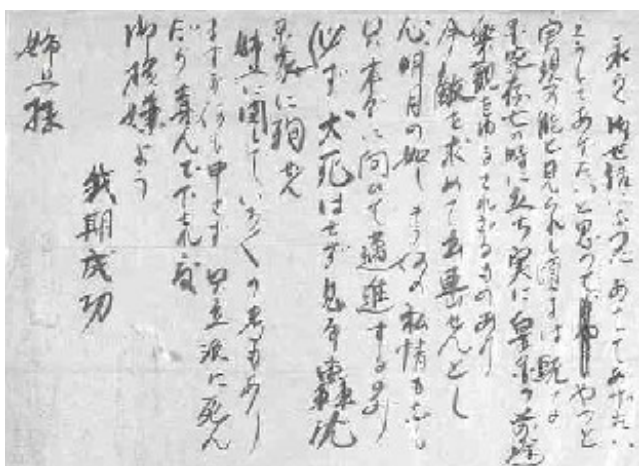 永々御世話になった あゝしてあげたい
こうしてあげたいと思つて やつと
実現可能と見られし頃には既によ
国家存亡の時に立ち実に皇国の前途
楽観をゆるさざるものあり
今敵を求めて出撃せんとし
心明月の如しもう何の私情もなし
只本分に向ひて邁進するのみ
必ず犬死はせず見事轟沈
国家に殉せん
姉上に関していろ〱の思もあり
ますが何も申さず 只立派に死ん
だら喜んで下され度
御機嫌よう
我期成功
姉上様